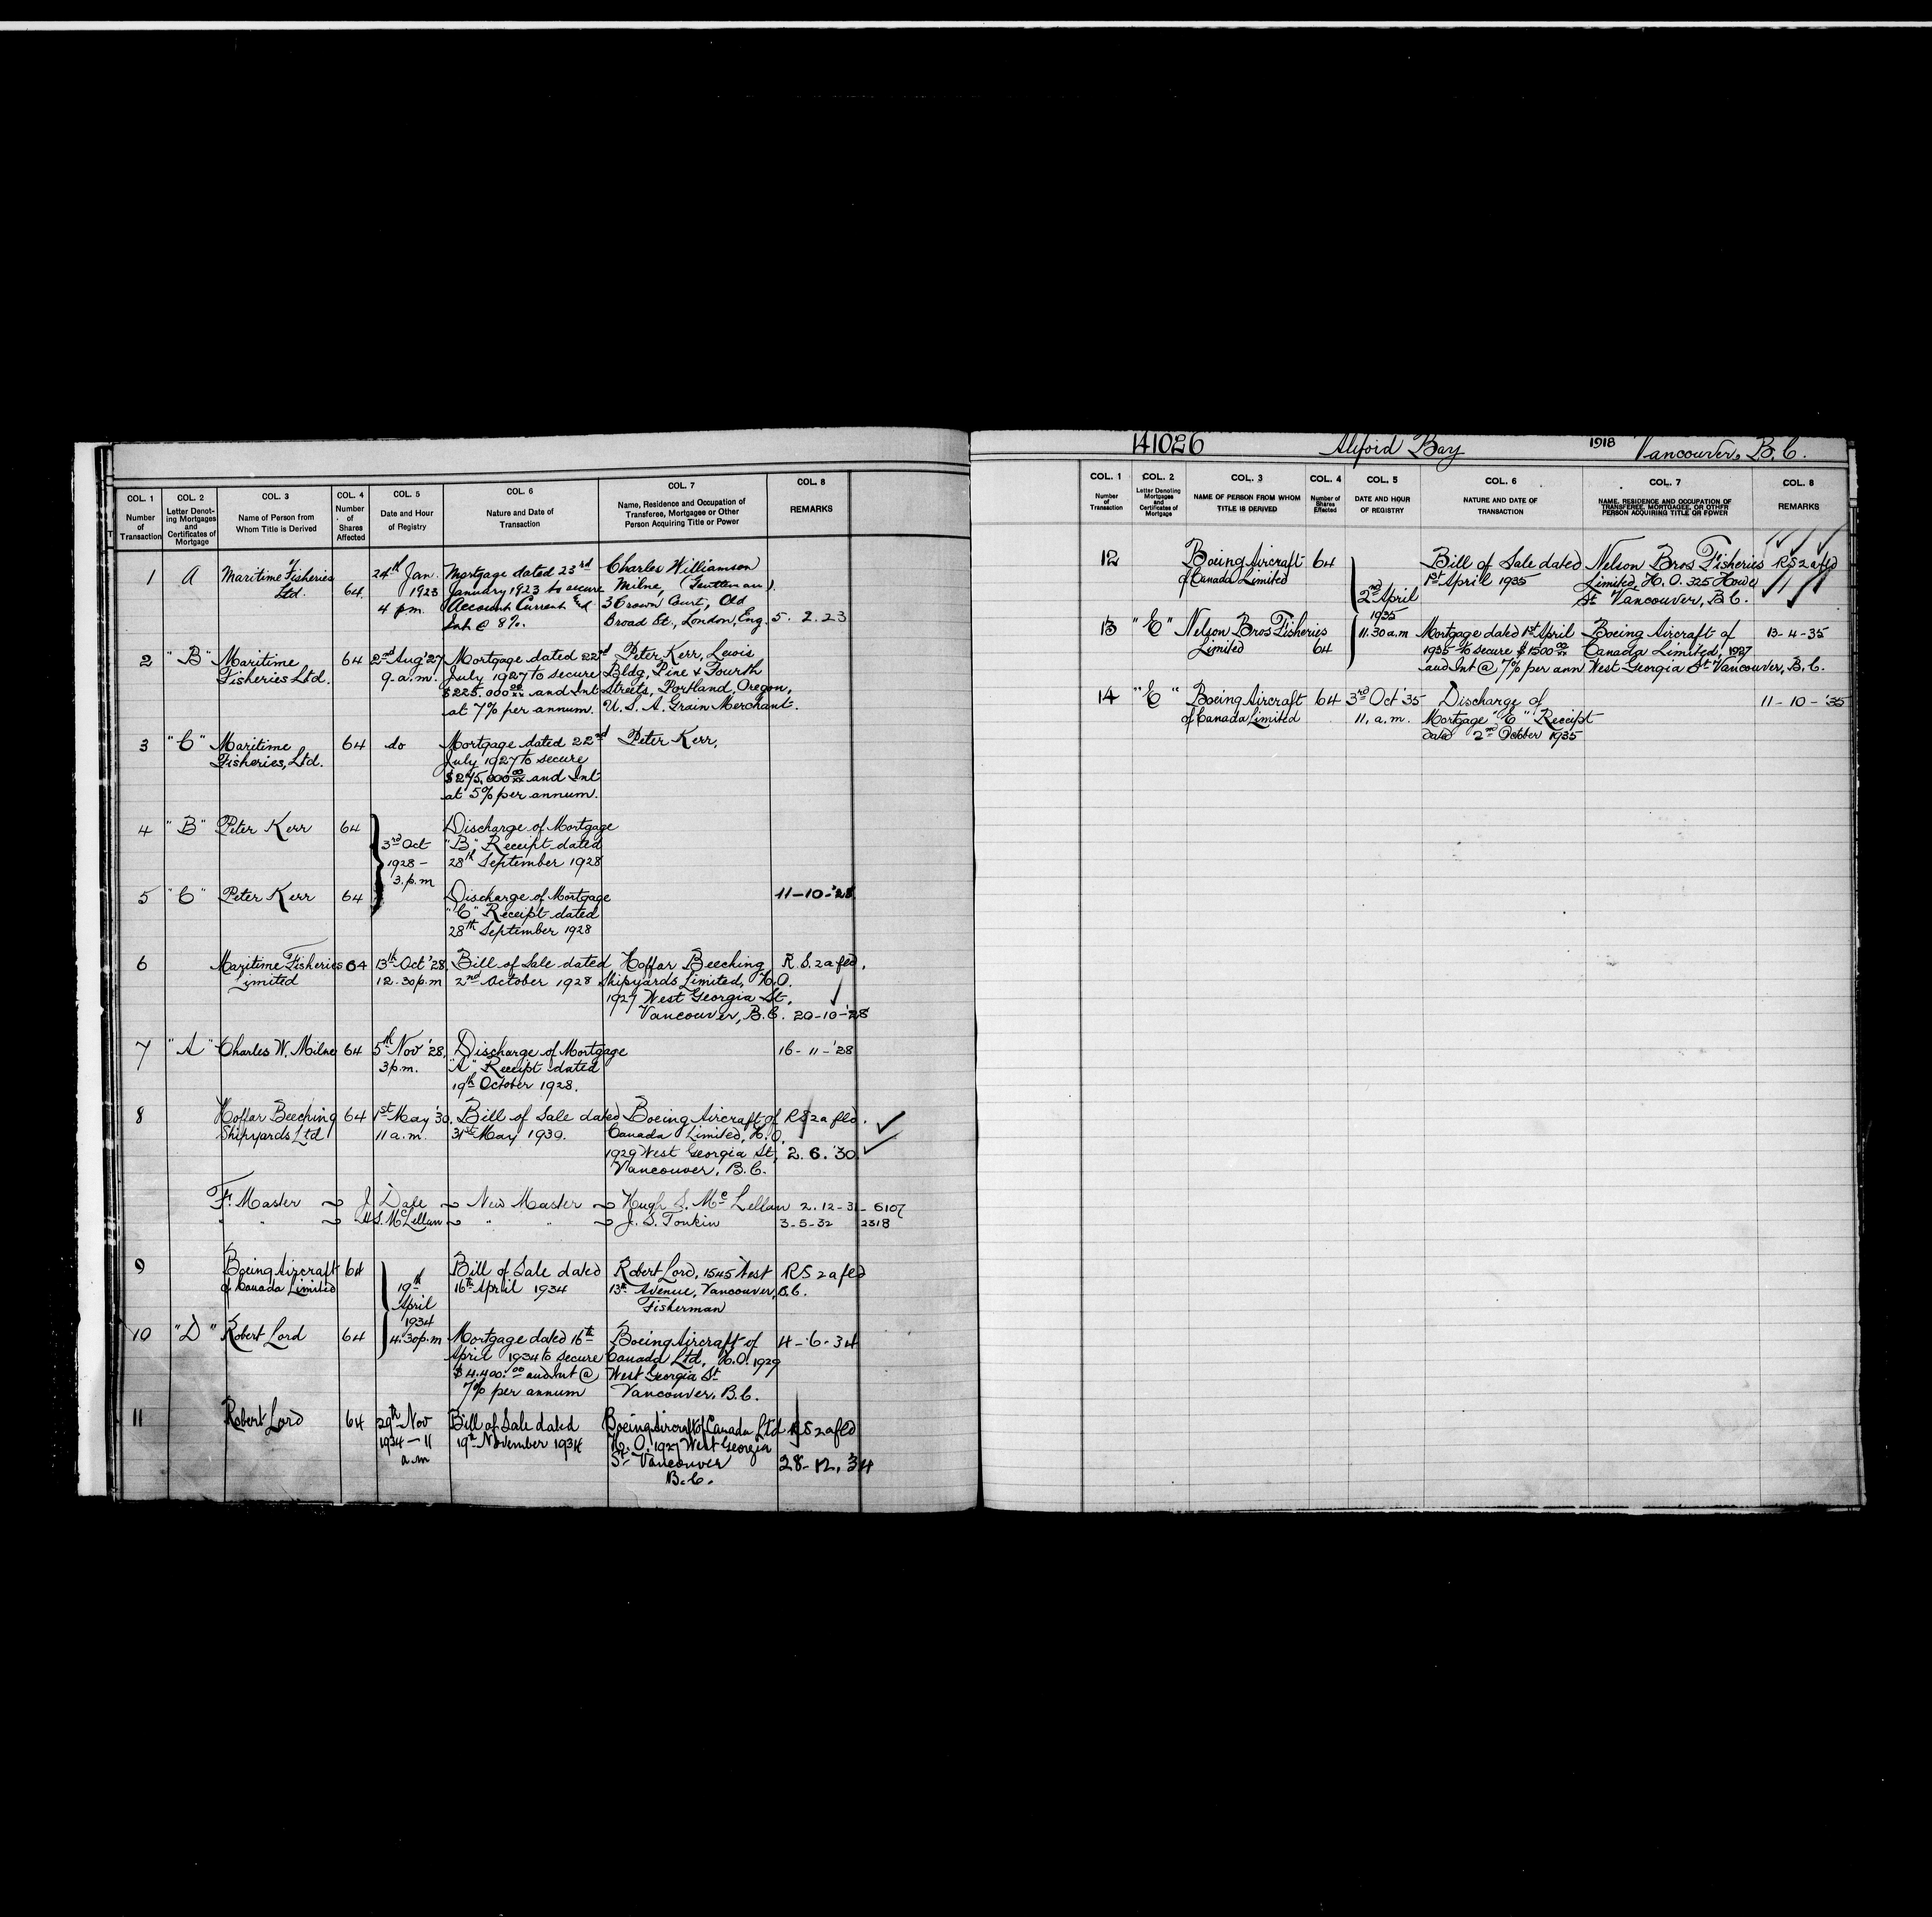 COL. 1 COL. 2 COL. 3 COL. 4 COL. 5 COL. 6 COL. 7 COL. 8
Number of Transaction
Letter Denoting Mortgages and Certificates of Mortgage
Name of Person from Whom Title is Derived
Number of Shares Affected
Date and Hour of Registry
Nature and Date of Transaction
Name, Residence and Occupation of Transferee, Mortgagee or Other Person Acquiring Title or Power
REMARKS
1 A Maritime Fisheries 24th Jan. Mortgage dated 23rd Charles Williamson
Ltd. 64. 1923 January 1923 to secure Milne, (Gentleman)
4 pm. Account Current & 3 Crown Court, Old
Int @ 8%. Broad St., London, Eng. 5. 2. 23
2 "B" Maritime 64 2nd Aug '27 Mortgage dated 22nd Peter Kerr, Lewis
Fisheries Ltd. 9. a.m. July 1927 to secure Bldg, Pine & Fourth
$225.000 00/xx and Int Streets, Portland, Oregon,
at 7% per annum. U. S. A. Grain Merchant.
3 "C" Maritime 64 do Mortgage dated 22nd Peter Kerr,
Fisheries, Ltd. July 1927 to secure
$275,000 00/xx and Int
at 5% per annum.
4 "B" Peter Kerr 64 Discharge of Mortgage
3rd Oct "B" Receipt dated
1928 - 28th September 1928
3. p.m
5 "C" Peter Kerr 64 Discharge of Mortgage 11-10-'28
"C" Receipt dated
28th September 1928
6 Maritime Fisheries 64 13th Oct '28. Bill of Sale dated Hoffar Beeching R. S. 2a fled.
Limited 12.30 p.m 2nd October 1928 Shipyards Limited, H.O.
1927 West Georgia St,
Vancouver, B.C. 20-10-'28
7 "A" Charles W. Milne 64 5th Nov '28. Discharge of Mortgage 16-11-'28
3 p.m. "A" Receipt dated
19th October 1928.
8 Hoffar Beeching 64 1st May '30. Bill of Sale dated Boeing Aircraft of RS 2a fled.
Shipyards Ltd 11 a.m. 31st May 1930. Canada Limited, H.O.
1929 West Georgia St, 2. 6. '30
Vancouver, B.C.
F. Master J Dale New Master Hugh S. McLellan 2.12-31- 6107
" " H S. McLellan " " J. S. Tonkin 3-5-32 2318
9 Boeing Aircraft 64 Bill of Sale dated Robert Lord, 1545 West RS 2a fled
of Canada Limited 19th 16th April 1934 13th Avenue, Vancouver, B.C.
April Fisherman
1934
10 "D" Robert Lord 64 4.30 p.m Mortgage dated 16th Boeing Aircraft of 4-6-34
April 1934 to secure Canada Ltd, H.O. 1929
$4.400.00 and Int @ West Georgia St
7% per annum Vancouver, B.C.
11 Robert Lord 64 29th Nov Bill of Sale dated Boeing Aircraft of Canada Ltd RS 2a fled
1934 - 11 19th November 1934 H. O. 1927 West Georgia
a.m St Vancouver 28-12. 34
B.C.
141026 Aliford Bay 1918 Vancouver, B.C.
COL. 1 COL. 2 COL. 3 COL. 4 COL. 5 COL. 6 COL. 7 COL. 8
Number of Transaction
Letter Denoting Mortgages and Certificates of Mortgage
NAME OF PERSON FROM WHOM TITLE IS DERIVED
Number of Shares Effected
DATE AND HOUR OF REGISTRY
NATURE AND DATE OF TRANSACTION
NAME, RESIDENCE AND OCCUPATION OF TRANSFEREE, MORTGAGEE, OR OTHER PERSON ACQUIRING TITLE OR POWER
REMARKS
12 Boeing Aircraft 64 Bill of Sale dated Nelson Bros Fisheries RS 2a fled
of Canada Limited 1st April 1935 Limited, H. O. 325 Howe
2nd April St Vancouver, B.C.
1935
13 "E" Nelson Bros Fisheries 11.30 a.m Mortgage dated 1st April Boeing Aircraft of 13-4-35
Limited 64 1935 to secure $1500 00/xx Canada Limited, 1927
and Int @ 7% per ann West Georgia St Vancouver, B.C.
14 "E" Boeing Aircraft 64 3rd Oct '35 Discharge of 11-10-'35
of Canada Limited 11, a.m. Mortgage "E" Receipt
dated 2nd October 1935